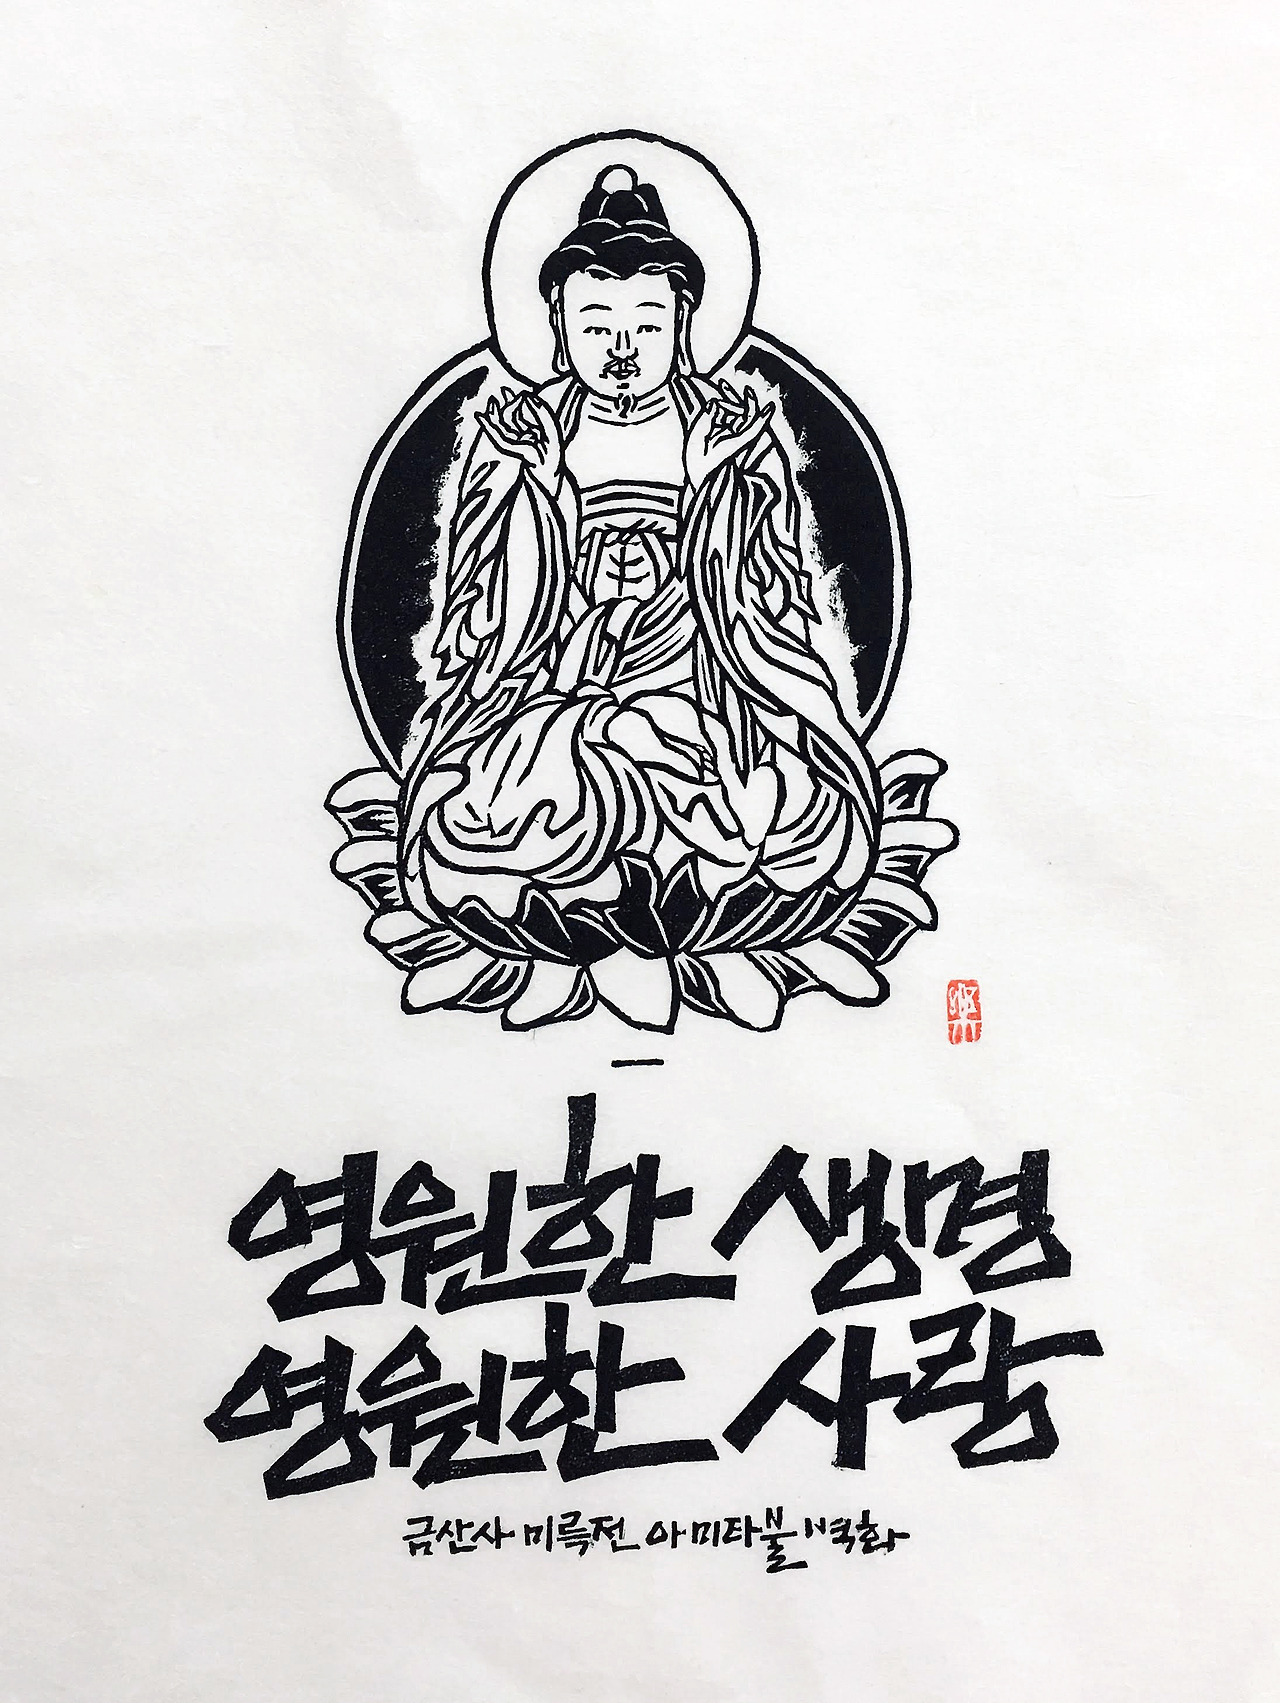 영원한 생명
영원한 사랑
금산사 미륵전 아미타불 벽화